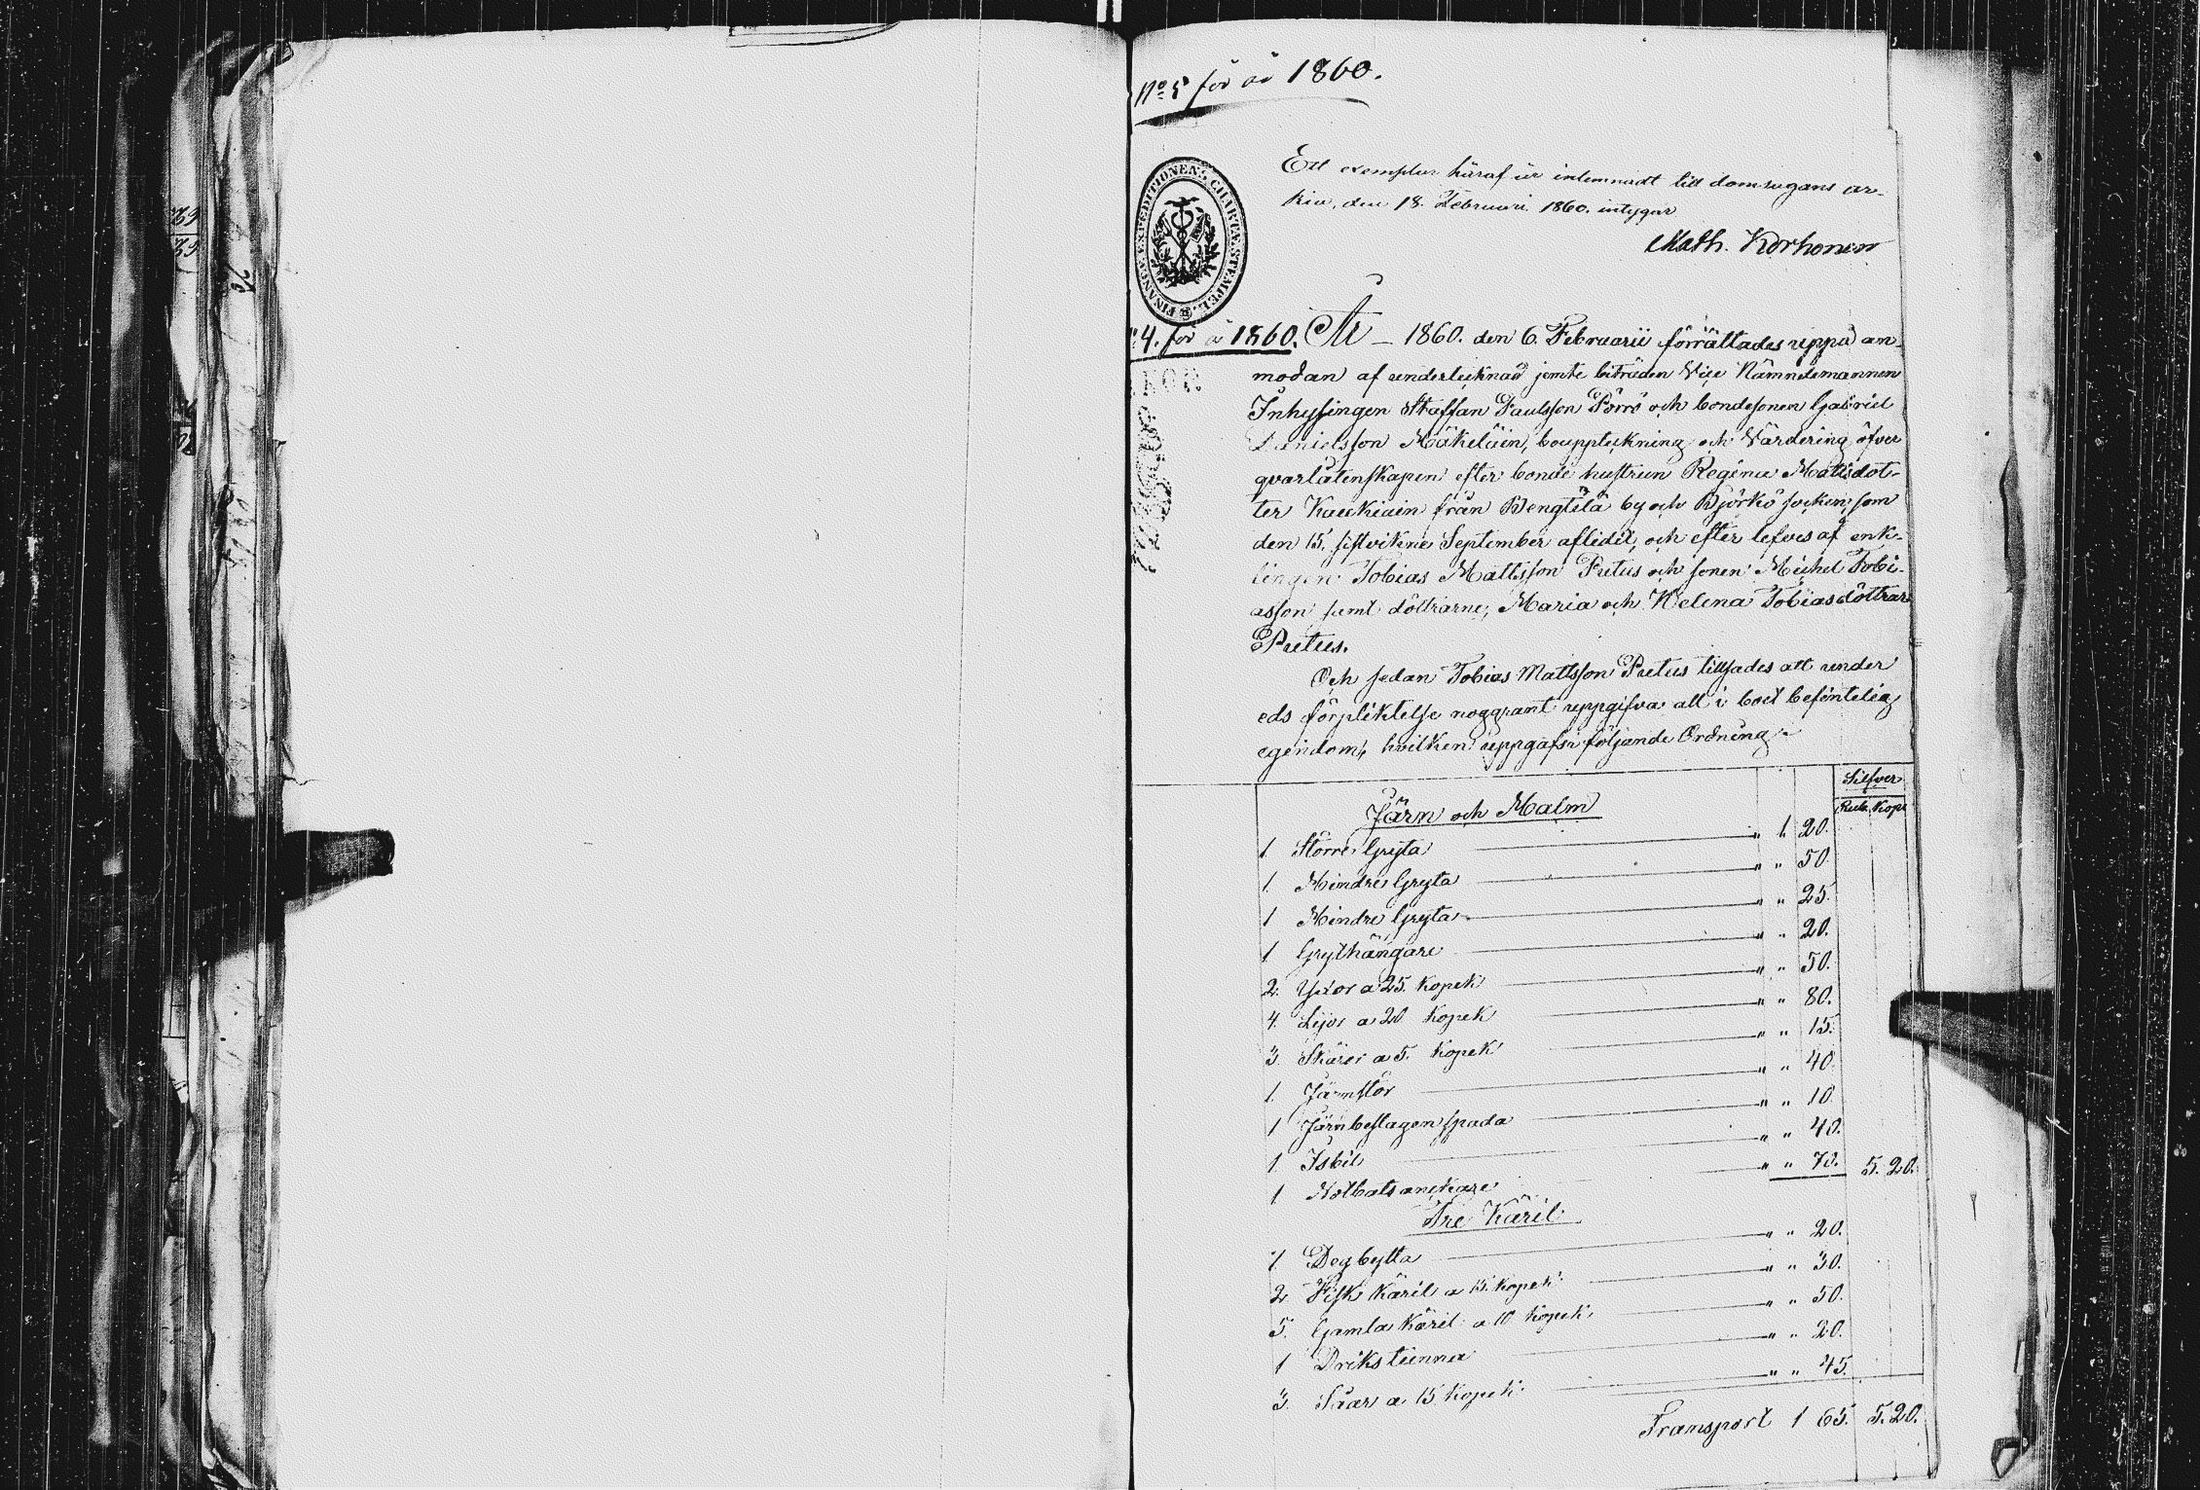 No 5 för år 1860.
Ett exemplar häraf är inlemnadt till domsagans ar-
kiv, den 18. Februari 1860. intygar
Math. Korhonen
FINANCE EXPEDITIONENS CHARTÆ STEMPEL.
4. för å 1860. År – 1860. den 6. Februarii förrättades uppå an-
modan af undertecknad jemte biträden Vice Nämndemannen
Inhysingen Staffan Paulsson Pörrö och bondesonen Gabriel
Danielsson Mäkeläin, bouppteckning och Värdering öfver
qvarlåtenskapen efter bonde hustrun Regina Mattsdot-
ter Kaukiain från Bengtilä by och Björkö socken, som
den 15. sistvikne September aflidit, och efter lefves af enk-
lingen Tobias Mattsson Pietus och sonen Michel Tobi-
asson samt döttrarne, Maria och Helena Tobiasdöttrar
Pietus.
Och sedan Tobias Mattsson Pietus tillsades att under
eds förpliktelse noggrant uppgifva all i boet befintelig
egendom, hvilken uppgafs i följande Ordning
Silfver
Rub. Kop.
Järn och Malm
1. Större Gryta " 1. 20.
1. Mindre Gryta " " 50.
1 Mindre Gryta " " 25.
1 Grythängare " " 20.
2. Yxor a 25. Kopek " " 50.
4. Lijor a 20 Kopek " " 80.
3. Skäror a 5. Kopek " " 15.
1. Järnstör " " 40.
1 Järnbeslagen spada " " 10.
1 Isbil " " 40.
1 Notbats anckare " " 70. 5. 20.
Tre Käril
1 Degbytta " " 20.
2. Fisk Käril a 15 Kopek " " 30.
5. Gamla Käril a 10 Kopek " " 50.
1 Driks tunna " " 20.
3. Såar a 15 Kopek " " 45.
Transport 1 65. 5. 20.